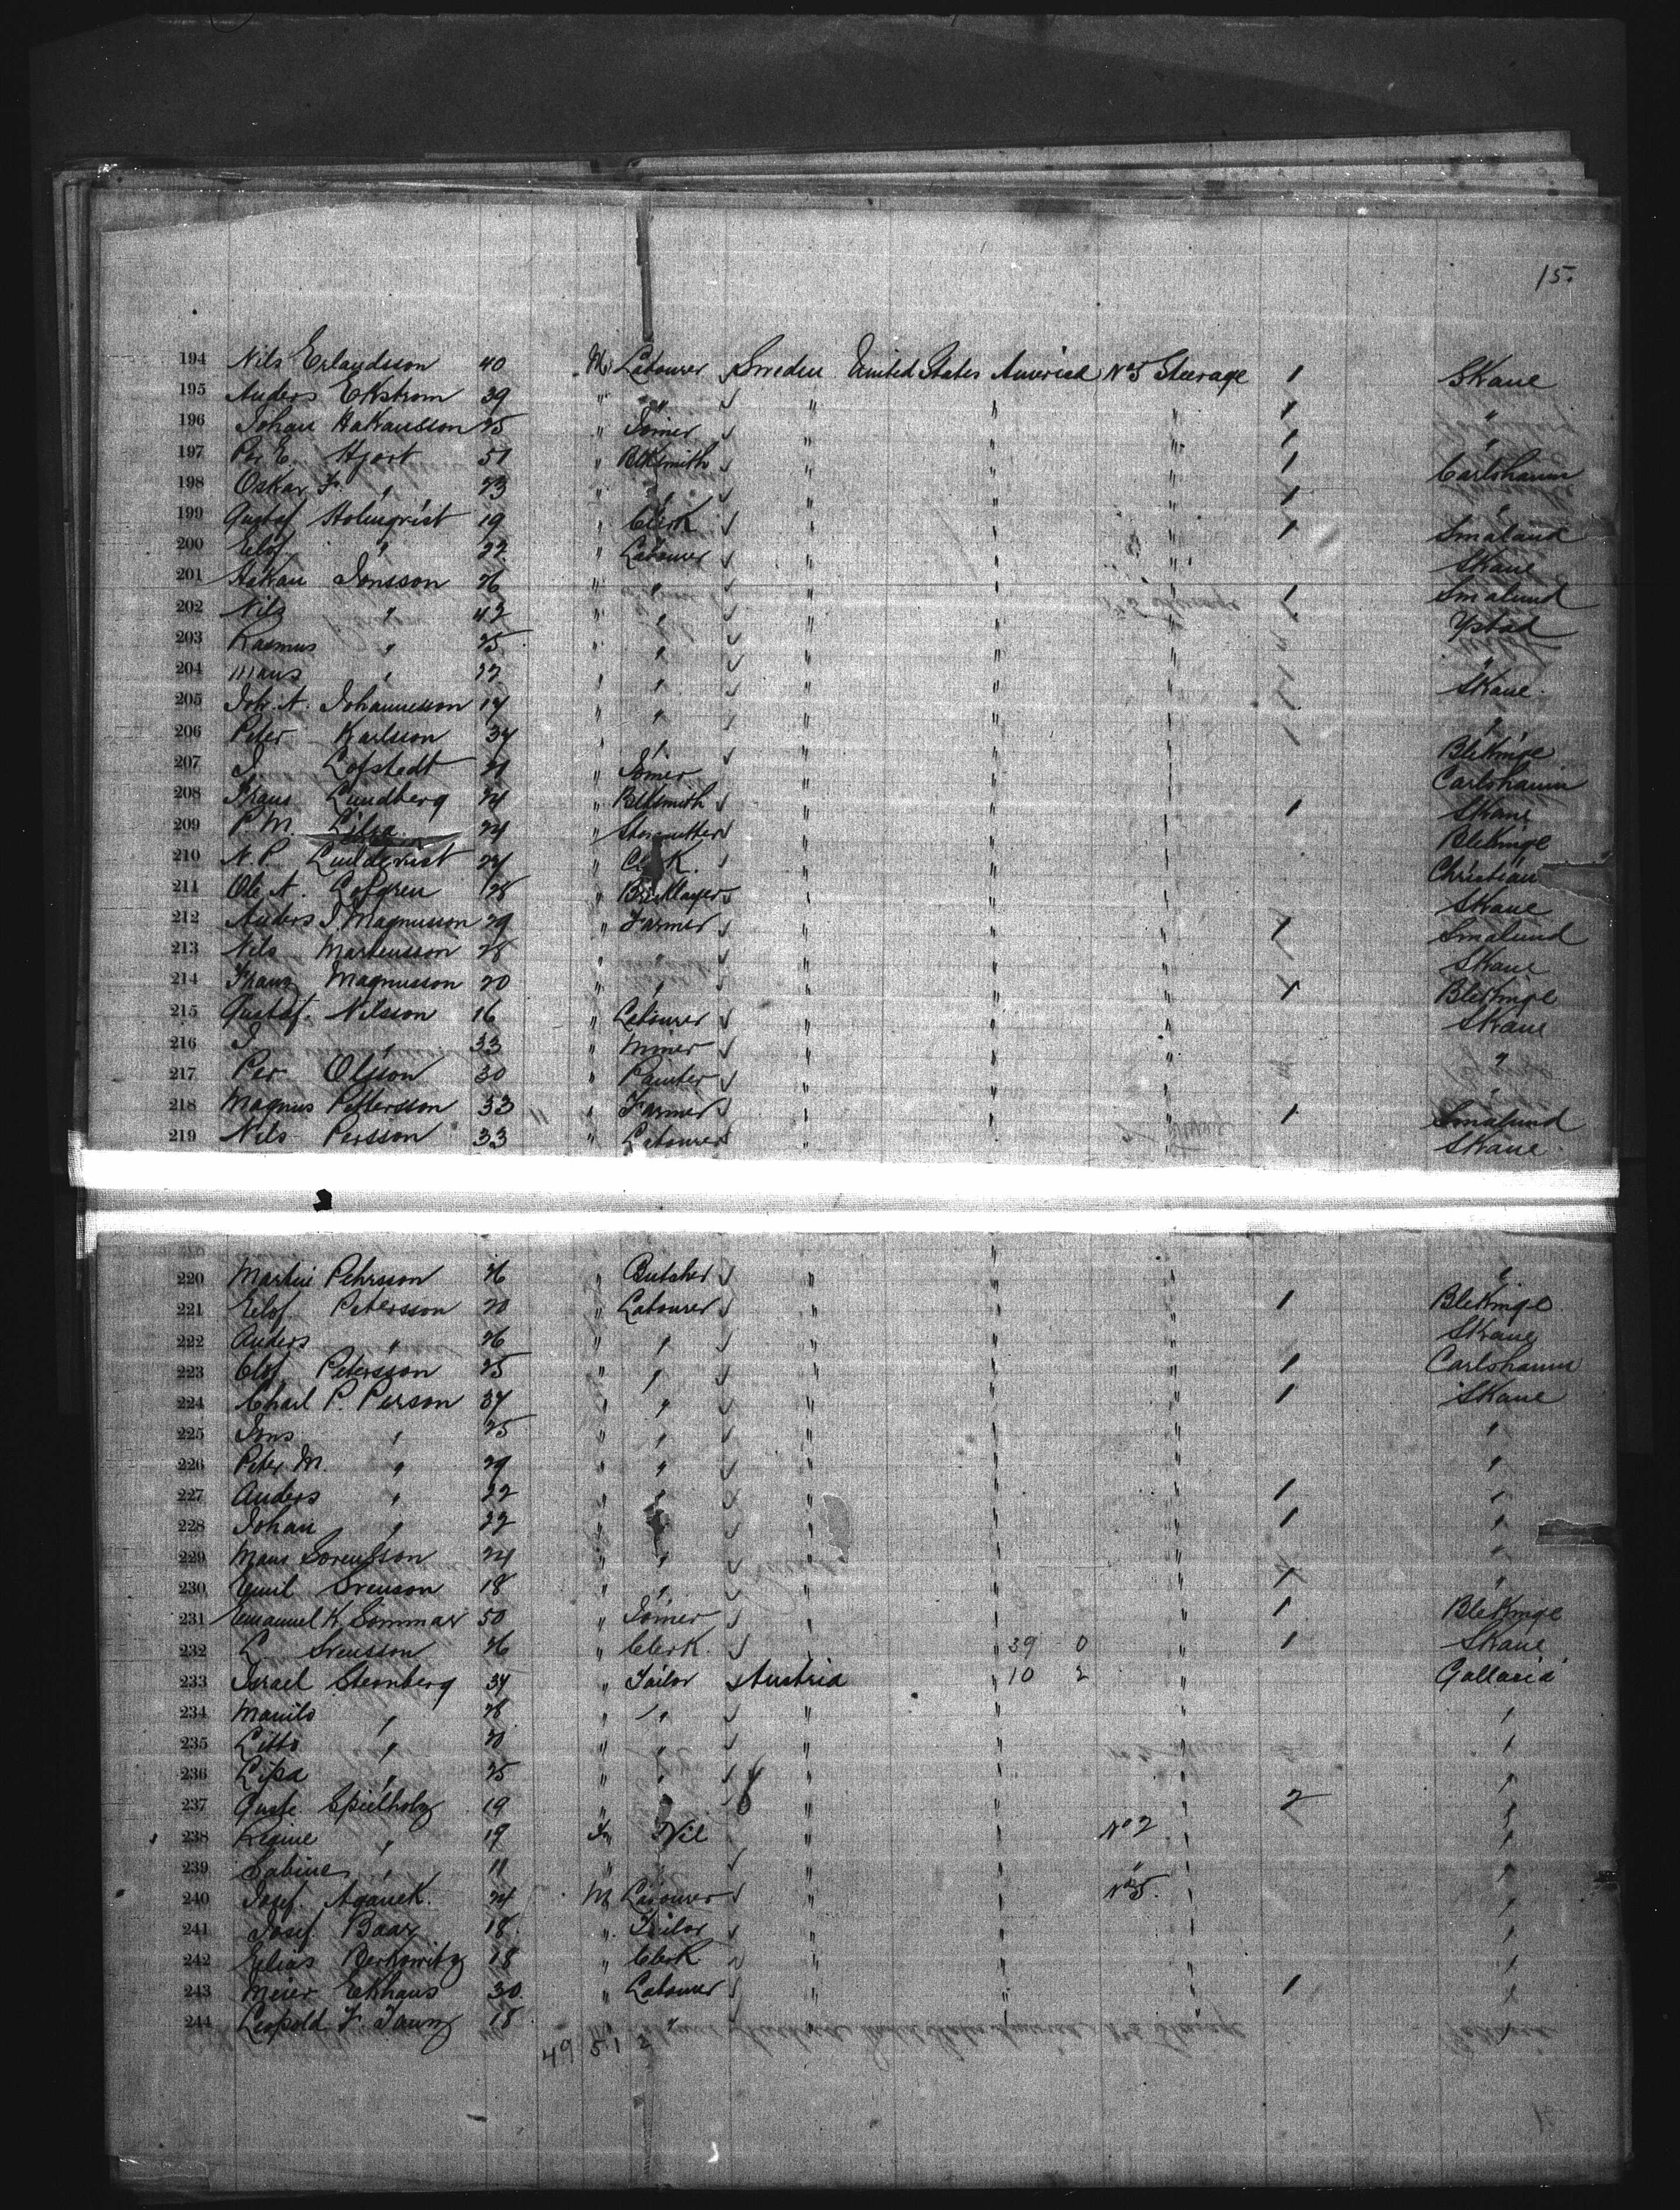 15.
194 Nils Erlandsson 40 M Labourer Sweden United States America No 5 Steerage 1 Skane
195 Anders Ekstrom 39 " " " " " 1 "
196 Johan Hakansson 25 " Joiner " " " 1 "
197 Per E. Hjort 51 " Blksmith " " " 1 Carlshamn
198 Oskar F. " 23 " " " " " 1 "
199 Gustaf Holmqvist 19 " Clerk " " " 1 Smaland
200 Elof " 22 " Labourer " " " Skane
201 Hakan Jonsson 26 " " " " " 1 Smalund
202 Nils " 42 " " " " " 1 Ystad
203 Rasmus " 25 " " " " " "
204 Mans " 22 " " " " " Skane
205 Joh. A. Johannesson 17 " " " " " "
206 Peter Karlsson 34 " " " " " 1 Blekinge
207 J Lofstedt 21 " Joiner " " " Carlshamn
208 Frans Lundberg 24 " Blksmith " " " 1 Skane
209 P. M. 24 " Stonecutter " " " Blekinge
210 N. P. Lundqvist 24 " Clerk " " " Christian
211 Ole A. Lofgren 28 " Bricklayer " " " Skane
212 Anders J Magnusson 29 " Farmer " " " 1 Smalund
213 Nils Martensson 28 " " " " " Skane
214 Frans Magnusson 20 " " " " " 1 Blekinge
215 Gustaf. Nilsson 16 " Labourer " " " Skane
216 J " 33 " Miner " " " "
217 Per Olsson 30 " Painter " " " "
218 Magnus Pettersson 33 " Farmer " " " 1 Smalund
219 Nils Persson 33 " Labourer Skane
220 Martin Pehrsson 26 " Butcher " " " "
221 Elof Petersson 20 " Labourer " " " 1 Blekinge
222 Anders " 26 " " " " " Skane
223 Olof Petersson 25 " " " " " 1 Carlshamn
224 Charl P. Person 37 " " " " " 1 Skane
225 Jons " 25 " " " " " "
226 Peter M. " 29 " " " " " "
227 Anders " 22 " " " " " 1 "
228 Johan " 22 " " " " " 1 "
229 Mans Sorensson 24 " " " " " "
230 Emil Svenson 18 " " " " " 1 "
231 Emanuel K. Sommar 50 " Joiner " " " 1 Blekinge
232 L Svensson 26 " Clerk " 39 0 " 1 Skane
233 Israel Sternberg 34 " Tailor Austria " 10 2 " Gallacia
234 " 28 " " " " " "
235 " 20 " " " " " "
236 Lipa " 25 " " " " " "
237 Spielholz 19 " " " " 2 "
238 Regine " 19 F Nil " " No 2 " "
239 Sabine " 11 " " " " " " "
240 Josef. 24 M Labourer " " No 5. " "
241 Josef Baar 18 " Tailor " " " "
242 Elias Berkowitz 18 " Clerk " " " "
243 Meier Ekhaus 30 " Labourer " " " 1 "
244 Leopold F. 18 "
49 51 2